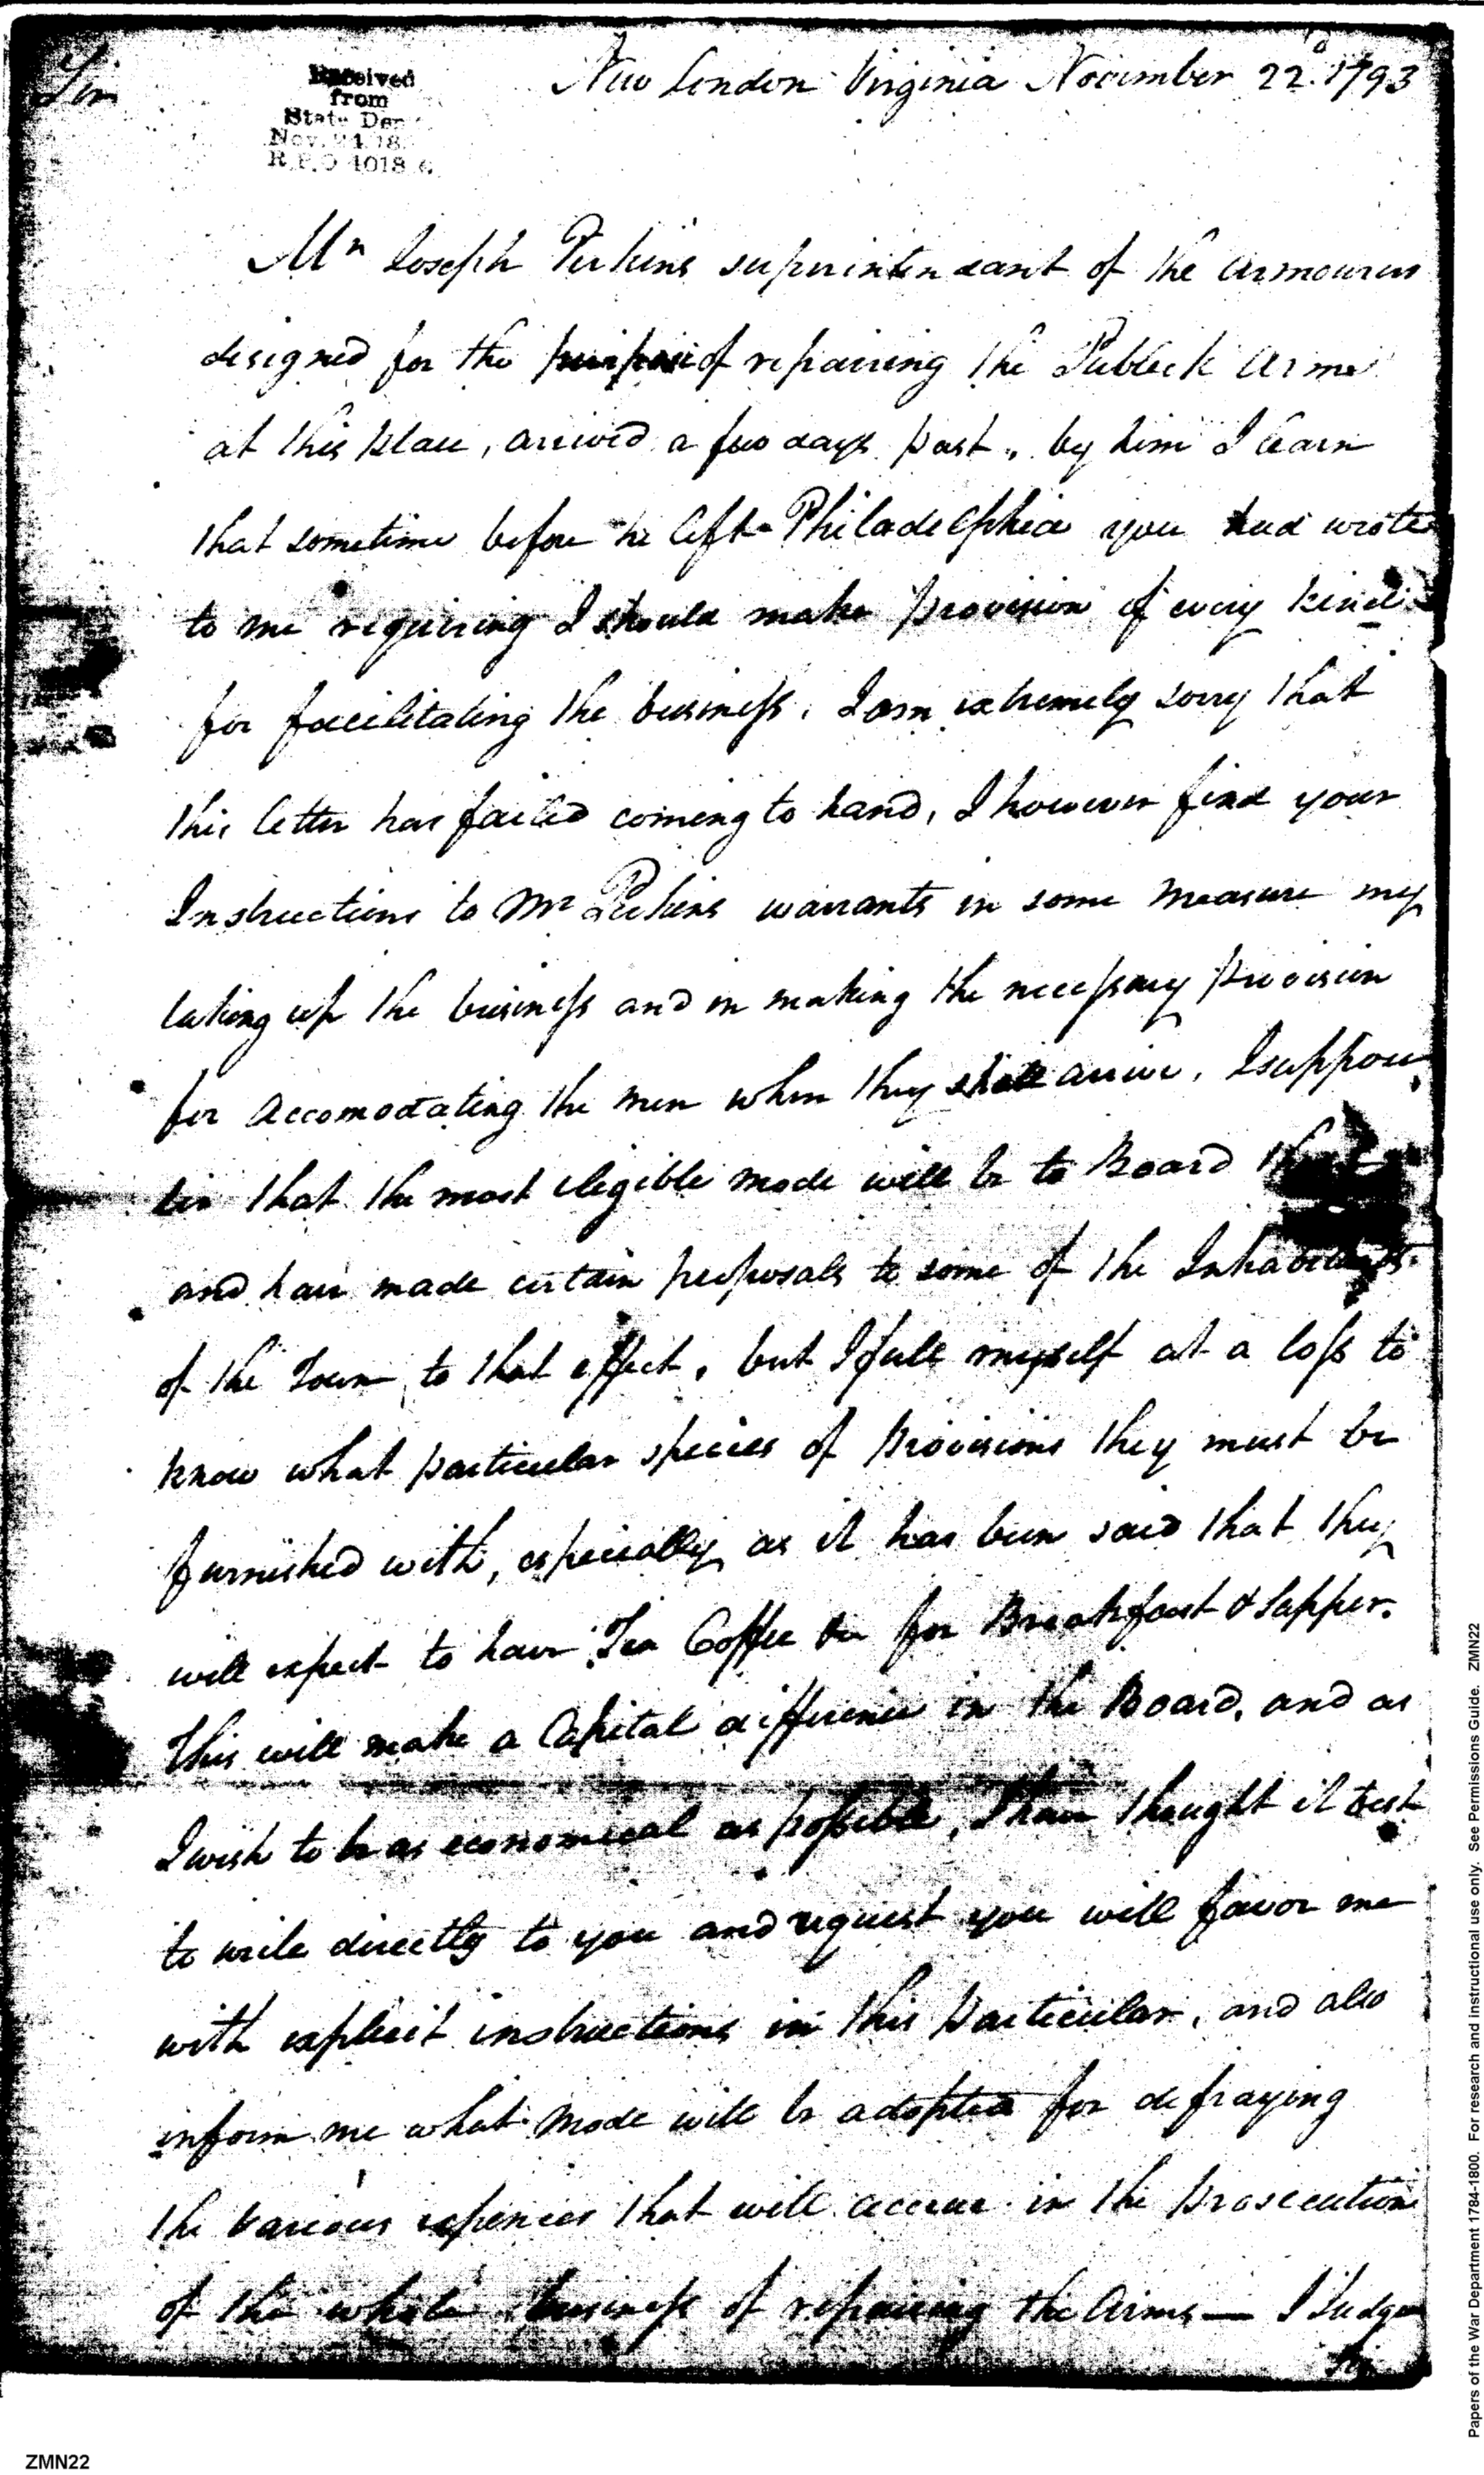 Sir
New London Virginia November 22d. 1793
Received
from
State Dep
Nov. 24 18
R.P.O 4018
Mr Joseph Perkins superintendant of the armourers
designed for the purpose of repairing the Publick Arms
at this place, arrived a few days past, by him I learn
that sometime before he left Philadelphia you had wrote
to me requiring I should make provision of every kind
for facilitating the business. I am extremely sorry that
this letter has failed coming to hand, I however find your
Instructions to Mr Perkins warrants in some measure my
taking up the business and in making the necessary provision
for accomodating the men when they shall arrive, I suppose
Sir that the most eligible mode will be to Board
and have made certain proposals to some of the Inhabitants
of the Town to that effect, but I feele myself at a loss to
know what particular species of provisions they must be
furnished with, especially as it has been said that they
will expect to have Tea Coffee &c for Breakfast & Supper.
This will make a Capital difference in the Board, and as
I wish to be as economical as possible, I have thought it best
to write directly to you and request you will favor me
with explicit instructions in this particular, and also
inform me what mode will be adopted for defraying
the various expences that will accrue in the prosecution
of the whole business of repairing the Arms — I Judge
ZMN22
Papers of the War Department 1784-1800. For research and instructional use only. See Permissions Guide. ZMN22